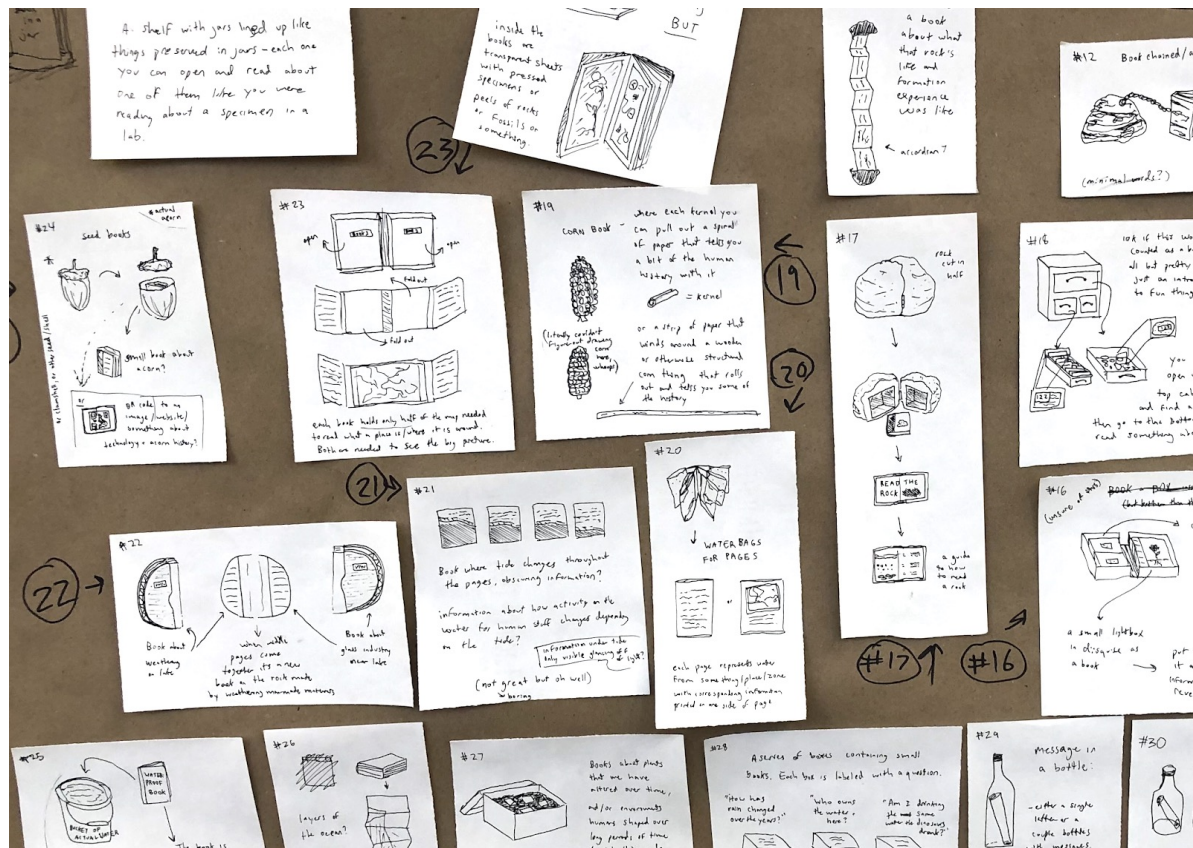 A shelf with jars lined up like
things preserved in jars - each one
you can open and read about
one of them like you were
reading about a specimen in a
lab.
BUT
inside the
books are
transparent sheets
with pressed
specimens or
peels of rocks
or fossils or
something.
a book
about what
that rock's
life and
formation
experience
was like
accordian?
#12 Book chained/
(minimal words?)
23
#24
*actual
acorn
seed books
*
small book about
acorn?
or clamshell, or other seed/shell
or
QR code to an
image/website/
something about
technology + acorn history?
#23
open
BOOK 1
BOOK 2
open
fold out
fold out
each book holds only half of the map needed
to read what a place is/where it is around.
Both are needed to see the big picture.
#19
CORN BOOK -
where each kernel you
can pull out a spiral
of paper that tells you
a bit of the human
history with it
= kernel
(literally couldn't
figure out drawing
corn
here,
whoops)
or a strip of paper that
winds around a wooden
or otherwise structural
corn thing that rolls
out and tells you some of
the history
19
20
#17
rock
cut in
half
READ THE
ROCK
a guide
to how
to read
a rock
#17
#16
#18
ok if this
counted as a
all but pretty
just an
to fun thing
you
open
top
and find a
then go to the bottom
read something
21
22
#22
Book about
weathering
on lake
when middle
pages come
together its a new
book on the rock made
by weathering manmade materials
Book about
glass industry
near lake
#21
Book where tide changes throughout
the pages, obscuring information?
information about how activity on the
water for human stuff changes depending
on the tide?
information under tide
only visible glancing off
of light?
(not great but oh well)
boring
#20
WATER BAGS
FOR PAGES
or
each page represents water
from something/place/zone
with corresponding information
printed on one side of page
#16
(unsure of this)
a small lightbox
in disguise as
a book
put
it
#25
WATER
PROOF
BOOK
BUCKET OF
ACTUAL WATER
The book is
#26
layers of
the ocean?
#27
Books about plants
that we have
altered over time,
and/or environments
humans shaped over
long periods of time
#28
A series of boxes containing small
books. Each box is labeled with a question.
"How has
rain changed
over the years?"
"Who owns
the water,
here?"
"Am I drinking
the same
water the dinosaurs
drank?"
#29
message in
a bottle:
- either a single
letter or a
couple bottles
with messages.
#30